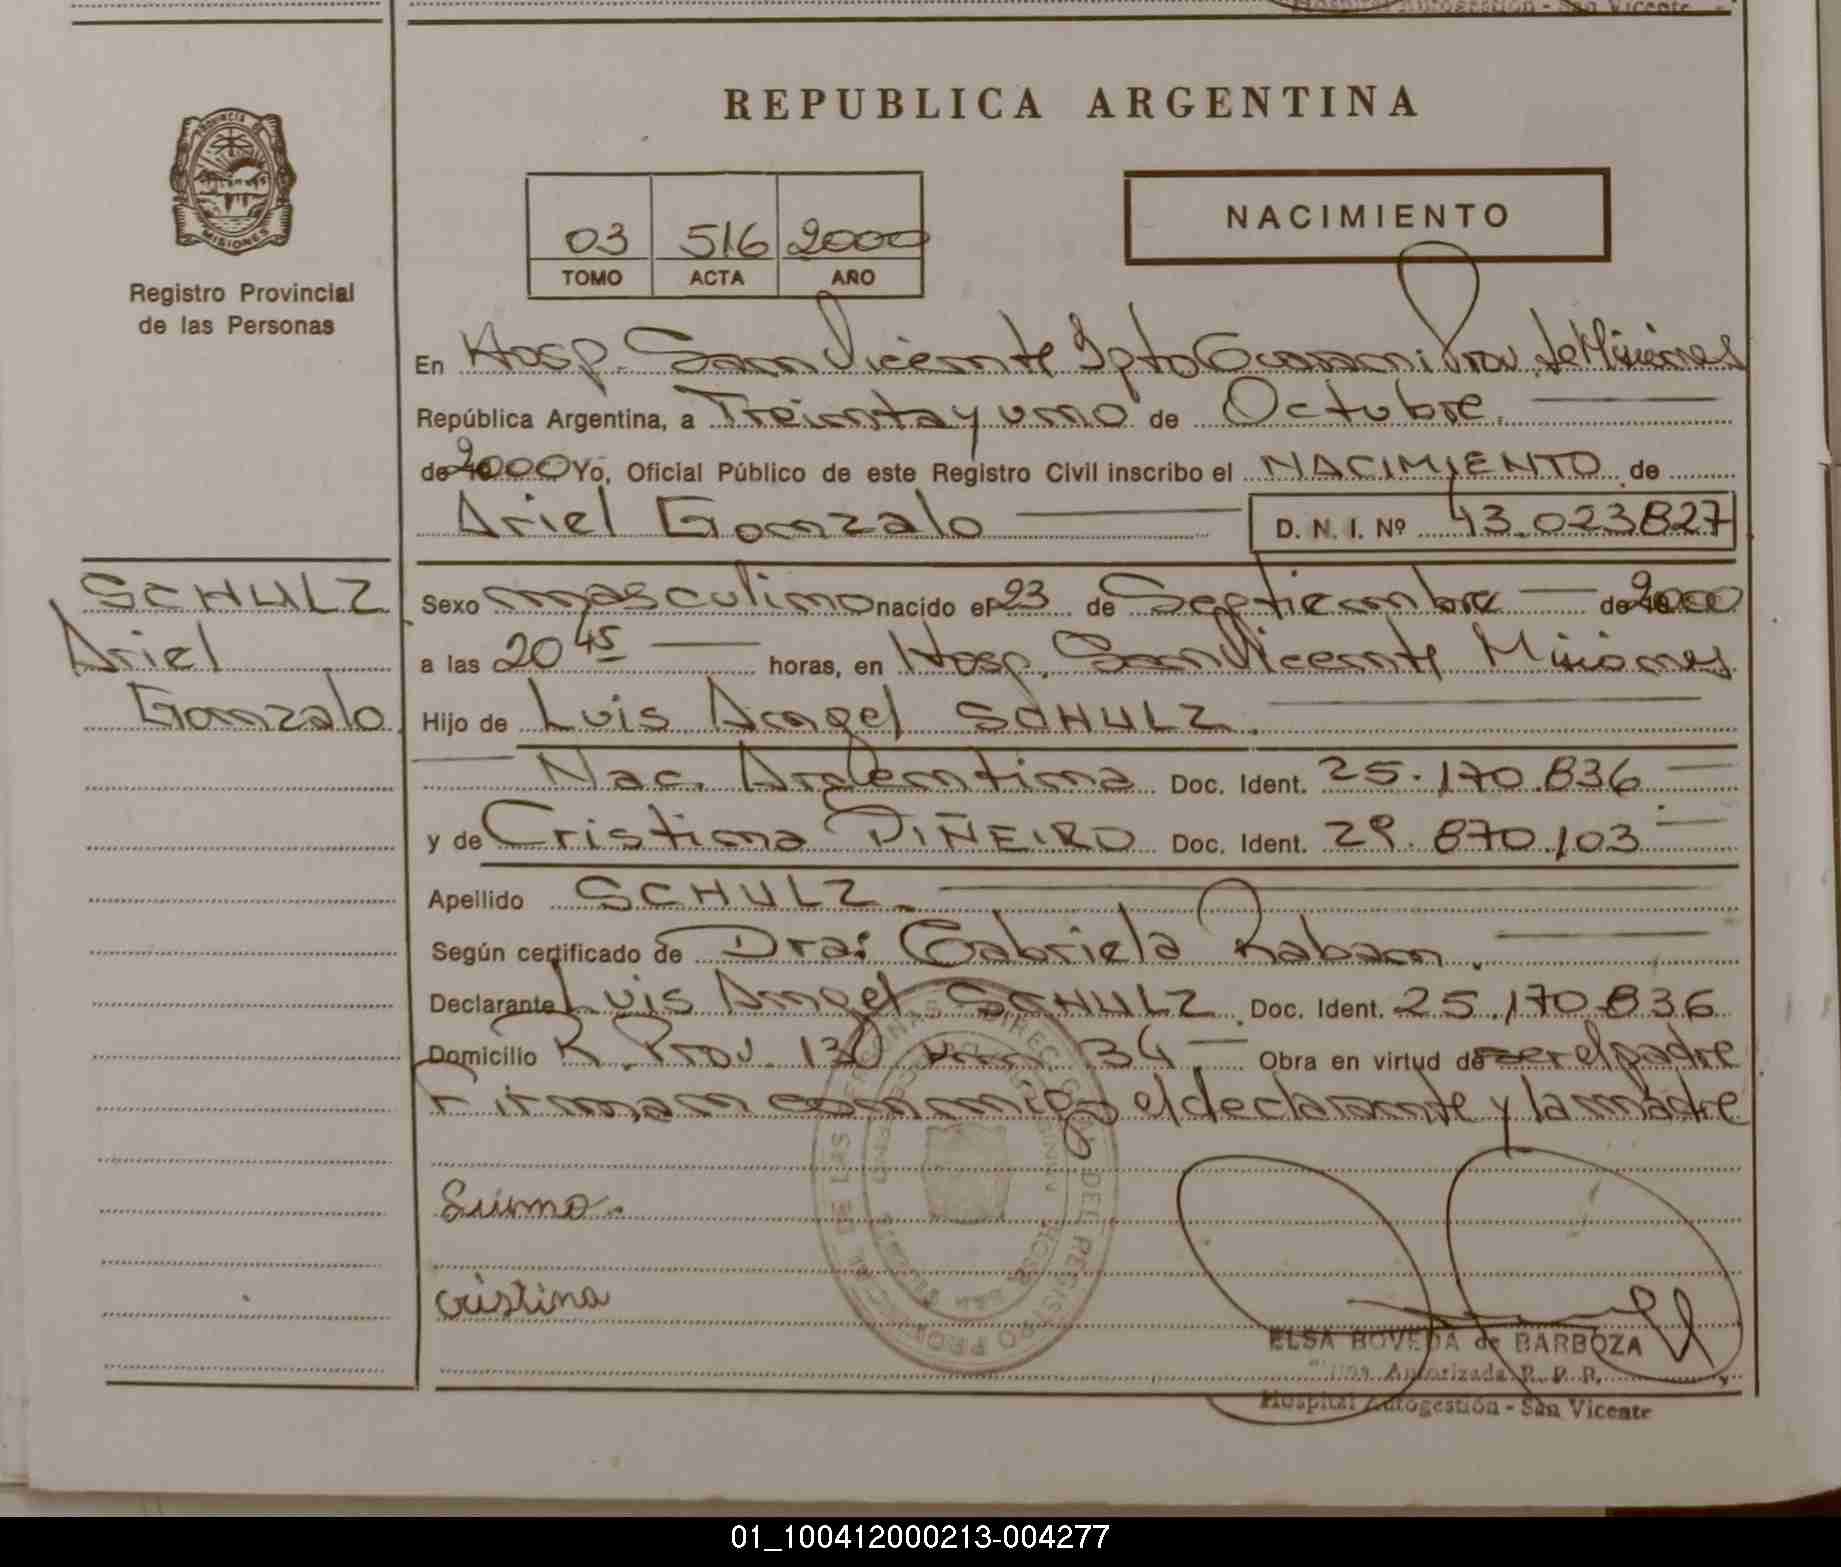 Hospital Autogestión - San Vicente
REPUBLICA ARGENTINA
PROVINCIA DE
MISIONES
Registro Provincial
de las Personas
03 516 2000
TOMO ACTA AÑO
NACIMIENTO
En Hosp. San Vicente Dpto Guarani Prov. de Misiones
República Argentina, a Treinta y uno de Octubre.
de 2000 Yo, Oficial Público de este Registro Civil inscribo el NACIMIENTO de
Ariel Gonzalo D. N. I. Nº 43.023827
SCHULZ
Ariel
Gonzalo
Sexo masculino nacido el 23 de Septiembre de 2000
a las 20 45 horas, en Hosp. San Vicente Misiones
Hijo de Luis Angel SCHULZ.
Nac. Argentina Doc. Ident. 25.170.836
y de Cristina PIÑEIRO Doc. Ident. 29.870.103
Apellido SCHULZ
Según certificado de Dra: Gabriela Raban.
Declarante Luis Angel SCHULZ Doc. Ident. 25.170.836
Domicilio R. Prov. 13 km 34 Obra en virtud de ser el padre
Firman conmigo el declarante y la madre
cristina
ELSA BOVEDA de BARBOZA
Autorizada R. P. P.
Hospital Autogestión - San Vicente
01_100412000213-004277